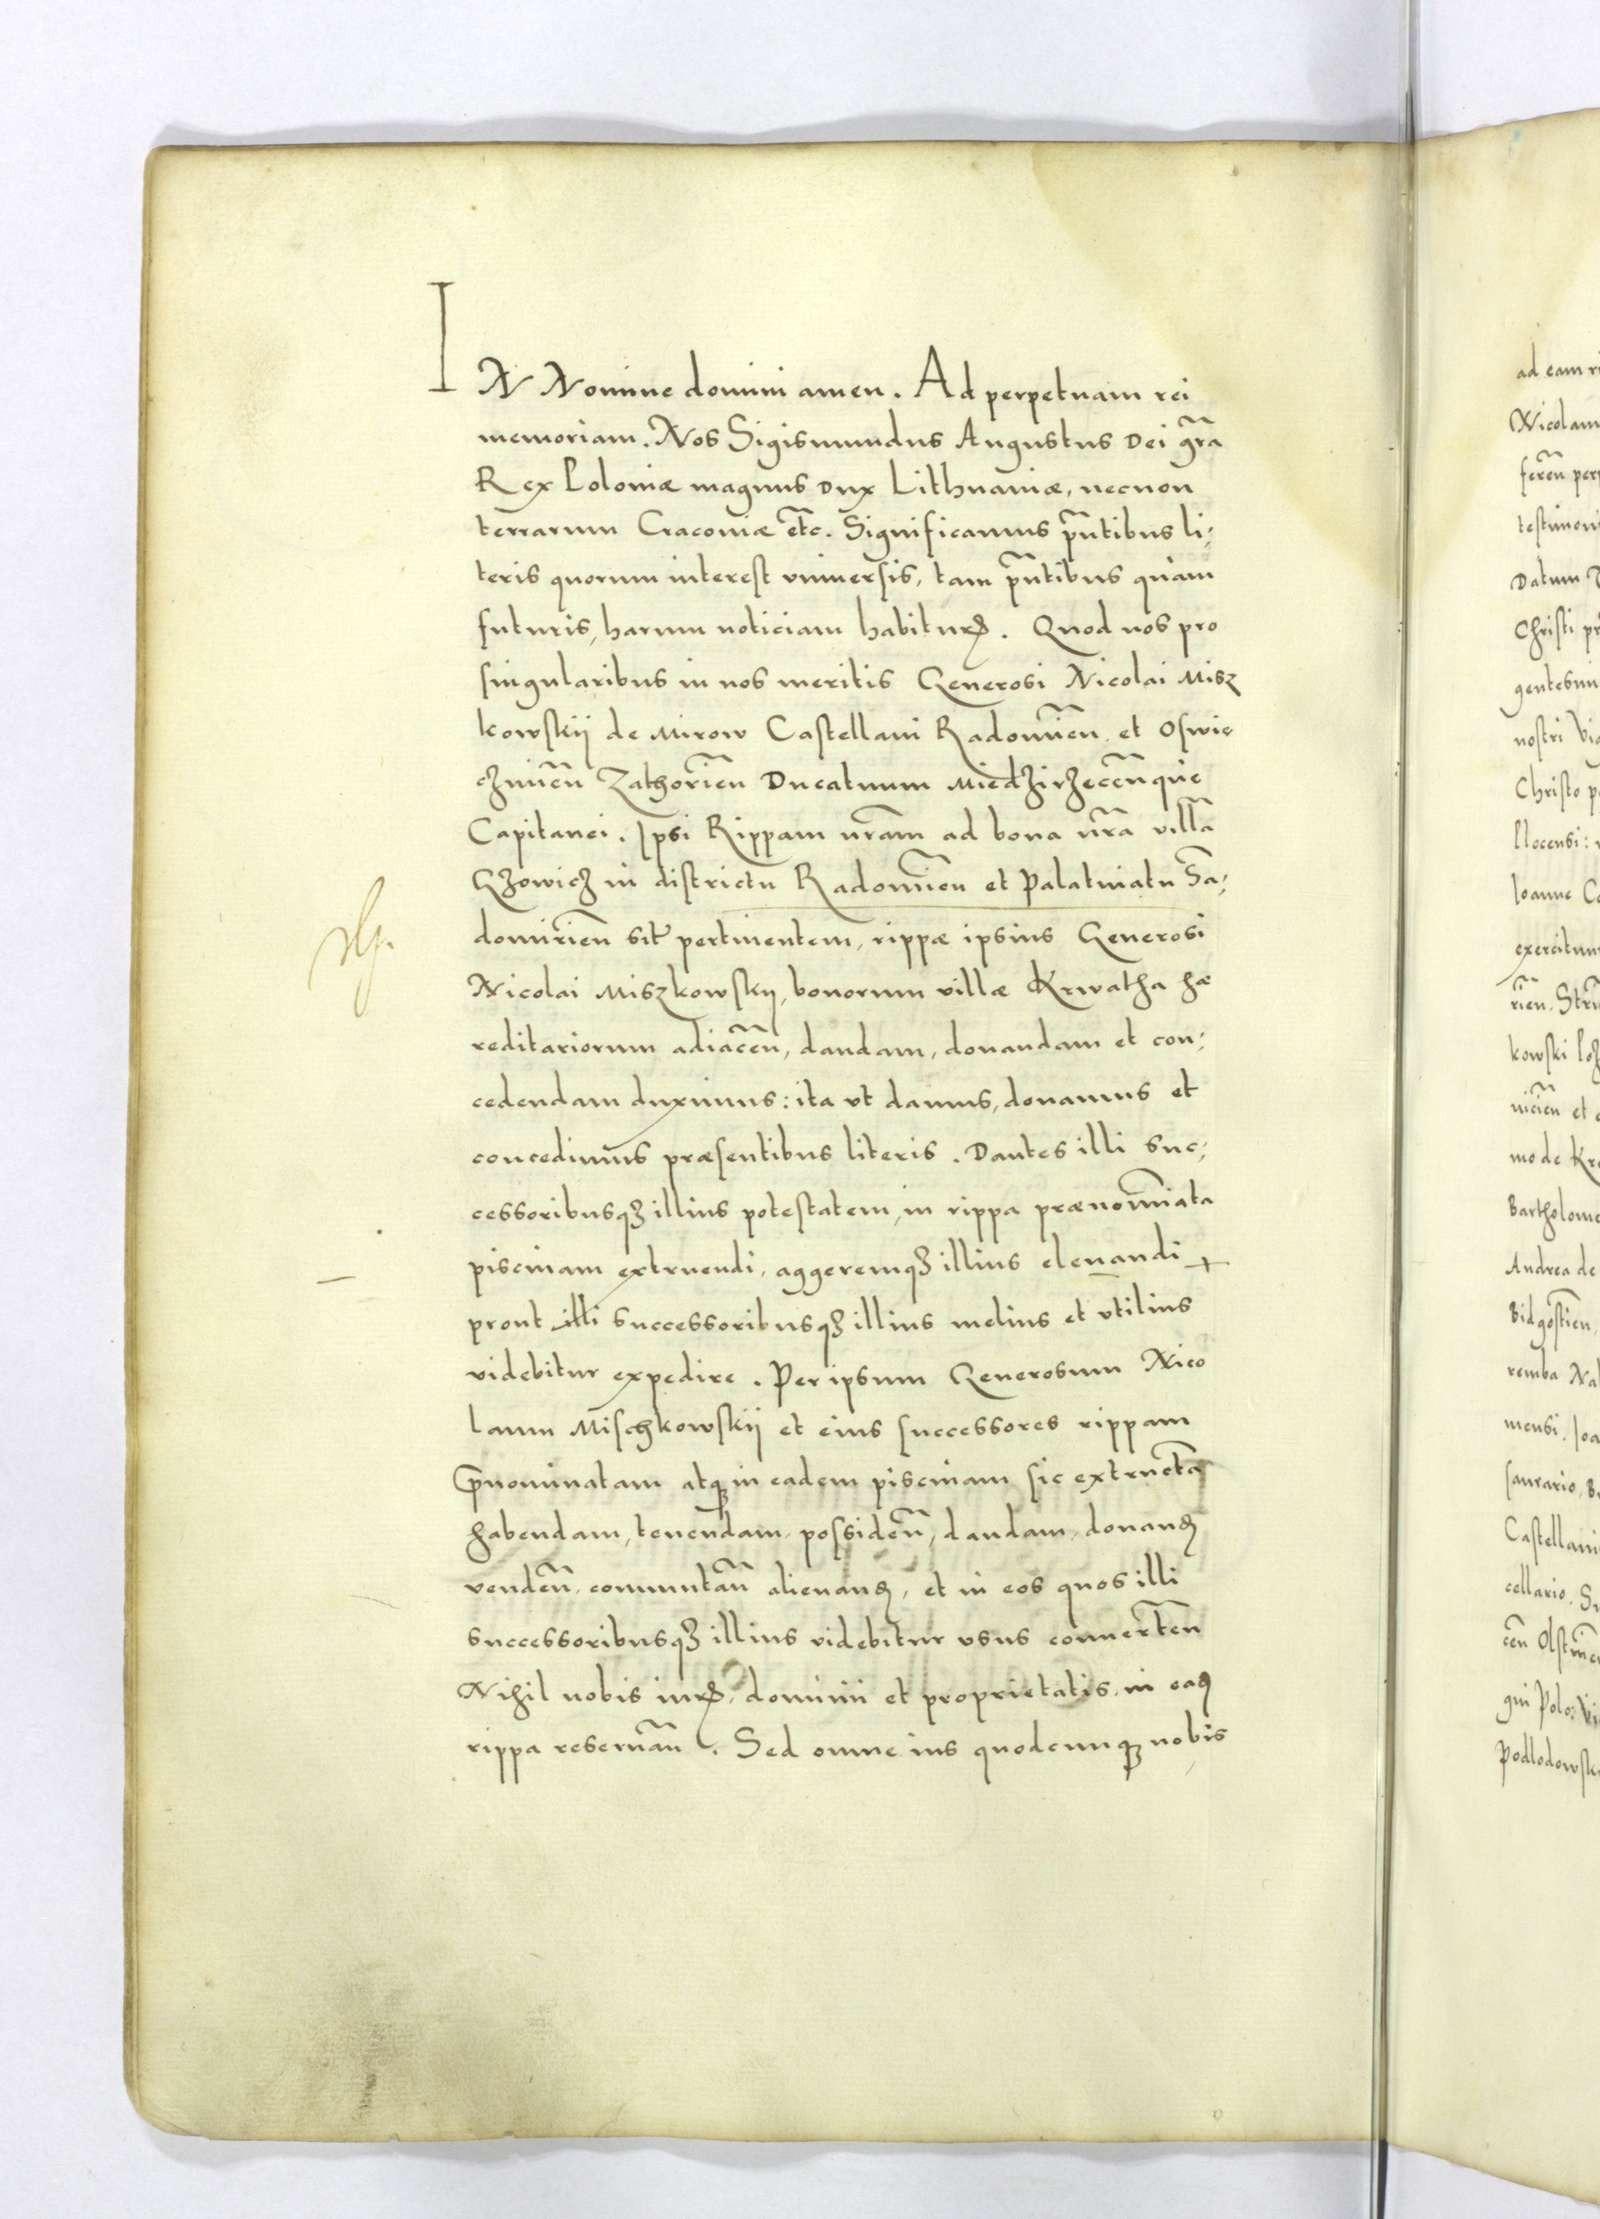 IN Nomine domini amen. Ad perpetuam rei
memoriam. Nos Sigismundus Augustus Dei gr̃a
Rex Poloniæ magnus Dux Lithuaniæ, necnon
terrarum Cracoviæ etc̃. Significamus pñtibus li,
teris quorum interest vniuersis, tam pñtibus quàm
futuris, harum noticiam habiturꝭ. Quod nos pro
singularibus in nos meritis Generosi Nicolai Misz
kowskij de Mirow Castellani Radomien̄. et Oswie
czimen̄ Zathorien̄ Ducatuum Miedzirzecen̄que
Capitanei. Ipsi Rippam nr̃am ad bona nr̃a villã
Gzowicz in districtu Radomien̄ et Palatinatu Sã,
domirien̄ sit̃ pertinentem, rippæ ipsius Generosi
Nicolai Miszkowsky, bonorum villæ Krwatha hæ
reditariorum adiacen̄, dandam, donandam et con,
cedendam duximus: ita vt damus, donamus et
concedimus præsentibus literis. Dantes illi suc,
cessoribusqꝫ illius potestatem, in rippa prænom̄inata
piscinam extruendi, aggeremqꝫ illius eleuandi +
prout illi successoribusqꝫ illius melius et vtilius
videbitur expedire. Per ipsum Generosum Nico
laum Mischkowskij et eius successores rippam
p̄nominatam atqꝫ in eadem piscinam sic extructã
habendam, tenendam, possiden̄, dandam, donanꝺ
venden̄, commutan̄ alienanꝺ, et in eos quos illi
successoribusqꝫ illius videbitur vsus conuerten̄
Nihil nobis iurꝭ, dominii et proprietatis, in eaꝺ
rippa reseruan̄. Sed omne ius quodcunqꝫ nobis
ad eam
Nicolaum
feren̄
Datum
Christi
nostri
Christo
Ioanne
exercituum
kowski
mo de
Andrea de
Bidgostien̄,
remba
mensi.
Castellani
cellario.
Podlodowsk